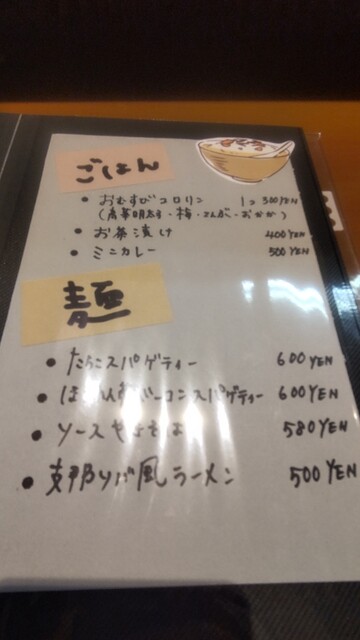 ごはん
• おむすびコロリン 1コ 300YEN
(高菜明太子・梅・さんが・おかか)
• お茶漬け 400YEN
• ミニカレー 500YEN
麺
• たらこスパゲティー 600YEN
• ベーコンスパゲティー 600YEN
• ソースやきそば 580YEN
• 支那そば風ラーメン 500YEN